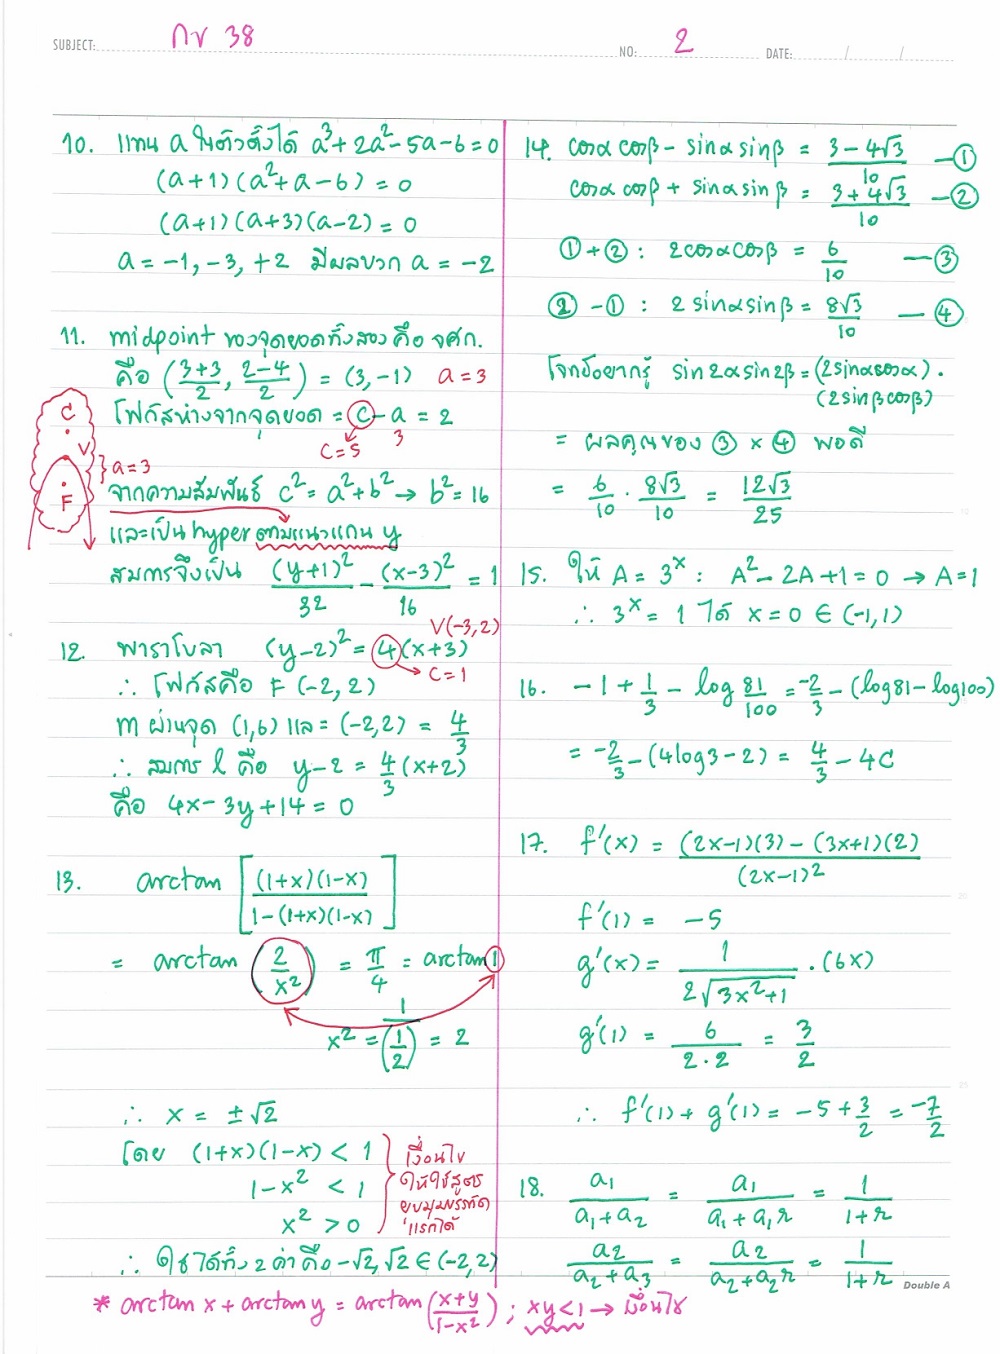 SUBJECT: กข 38
NO: 2 DATE: / /
10. แทน a ในตัวตั้งได้ a³+2a²-5a-6=0
(a+1)(a²+a-6)=0
(a+1)(a+3)(a-2)=0
a=-1,-3,+2 มีผลบวก a = -2
11. midpoint ของจุดยอดทั้งสองคือ จศก.
คือ (3+3/2, 2-4/2) = (3,-1) a=3
โฟกัสห่างจากจุดยอด = c - a = 2
c=5 3
C
V
F
} a=3
จากความสัมพันธ์ c²=a²+b² → b²=16
และเป็น hyper ตามแนวแกน y
สมการจึงเป็น (y+1)²/32 - (x-3)²/16 = 1
V(-3,2)
12. พาราโบลา (y-2)² = 4(x+3)
c=1
∴ โฟกัสคือ F(-2,2)
m ผ่านจุด (1,6) และ (-2,2) = 4/3
∴ สมการ l คือ y-2 = 4/3(x+2)
คือ 4x-3y+14=0
13. arctan [(1+x)(1-x)/1-(1+x)(1-x)]
= arctan (2/x²) = π/4 = arctan 1
x² = 1/(1/2) = 2
∴ x = ±√2
โดย (1+x)(1-x) < 1
1-x² < 1
x² > 0
} เงื่อนไข
ให้ใช้สูตร
ยุบมุมบรรทัด
แรกได้
∴ ใช้ได้ทั้ง 2 ค่าคือ -√2,√2 ∈ (-2,2)
* arctan x + arctan y = arctan (x+y/1-x²) ; xy<1 → เงื่อนไข
14. cosα cosβ - sinα sinβ = 3-4√3/10 —①
cosα cosβ + sinα sinβ = 3+4√3/10 —②
①+② : 2cosαcosβ = 6/10 —③
②-① : 2 sinαsinβ = 8√3/10 —④
โจทย์อยากรู้ sin2αsin2β = (2sinαcosα)·
(2sinβcosβ)
= ผลคูณของ ③ × ④ พอดี
= 6/10 · 8√3/10 = 12√3/25
15. ให้ A = 3ˣ : A²-2A+1=0 → A=1
∴ 3ˣ = 1 ได้ x=0 ∈ (-1,1)
16. -1 + 1/3 - log 81/100 = -2/3 - (log81 - log100)
= -2/3 - (4log3-2) = 4/3 - 4C
17. f'(x) = (2x-1)(3) - (3x+1)(2)/(2x-1)²
f'(1) = -5
g'(x) = 1/2√3x²+1 · (6x)
g'(1) = 6/2·2 = 3/2
∴ f'(1) + g'(1) = -5 + 3/2 = -7/2
18. a₁/a₁+a₂ = a₁/a₁+a₁r = 1/1+r
a₂/a₂+a₃ = a₂/a₂+a₂r = 1/1+r
Double A